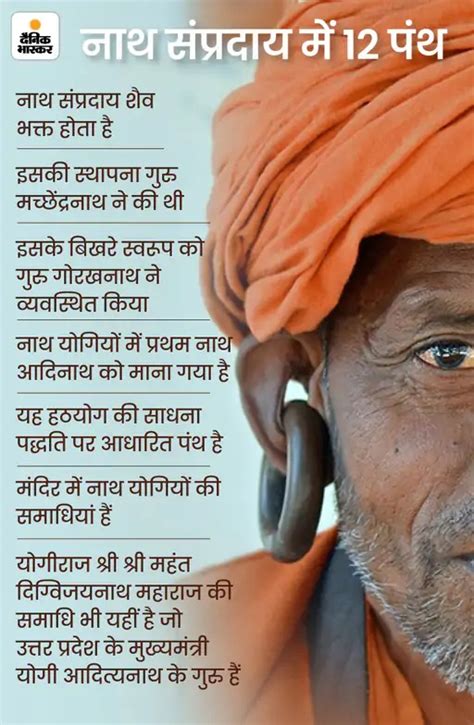 दैनिक
भास्कर
नाथ संप्रदाय में 12 पंथ
नाथ संप्रदाय शैव
भक्त होता है
इसकी स्थापना गुरु
मच्छेंद्रनाथ ने की थी
इसके बिखरे स्वरूप को
गुरु गोरखनाथ ने
व्यवस्थित किया
नाथ योगियों में प्रथम नाथ
आदिनाथ को माना गया है
यह हठयोग की साधना
पद्धति पर आधारित पंथ है
मंदिर में नाथ योगियों की
समाधियां हैं
योगीराज श्री श्री महंत
दिग्विजयनाथ महाराज की
समाधि भी यहीं है जो
उत्तर प्रदेश के मुख्यमंत्री
योगी आदित्यनाथ के गुरु हैं